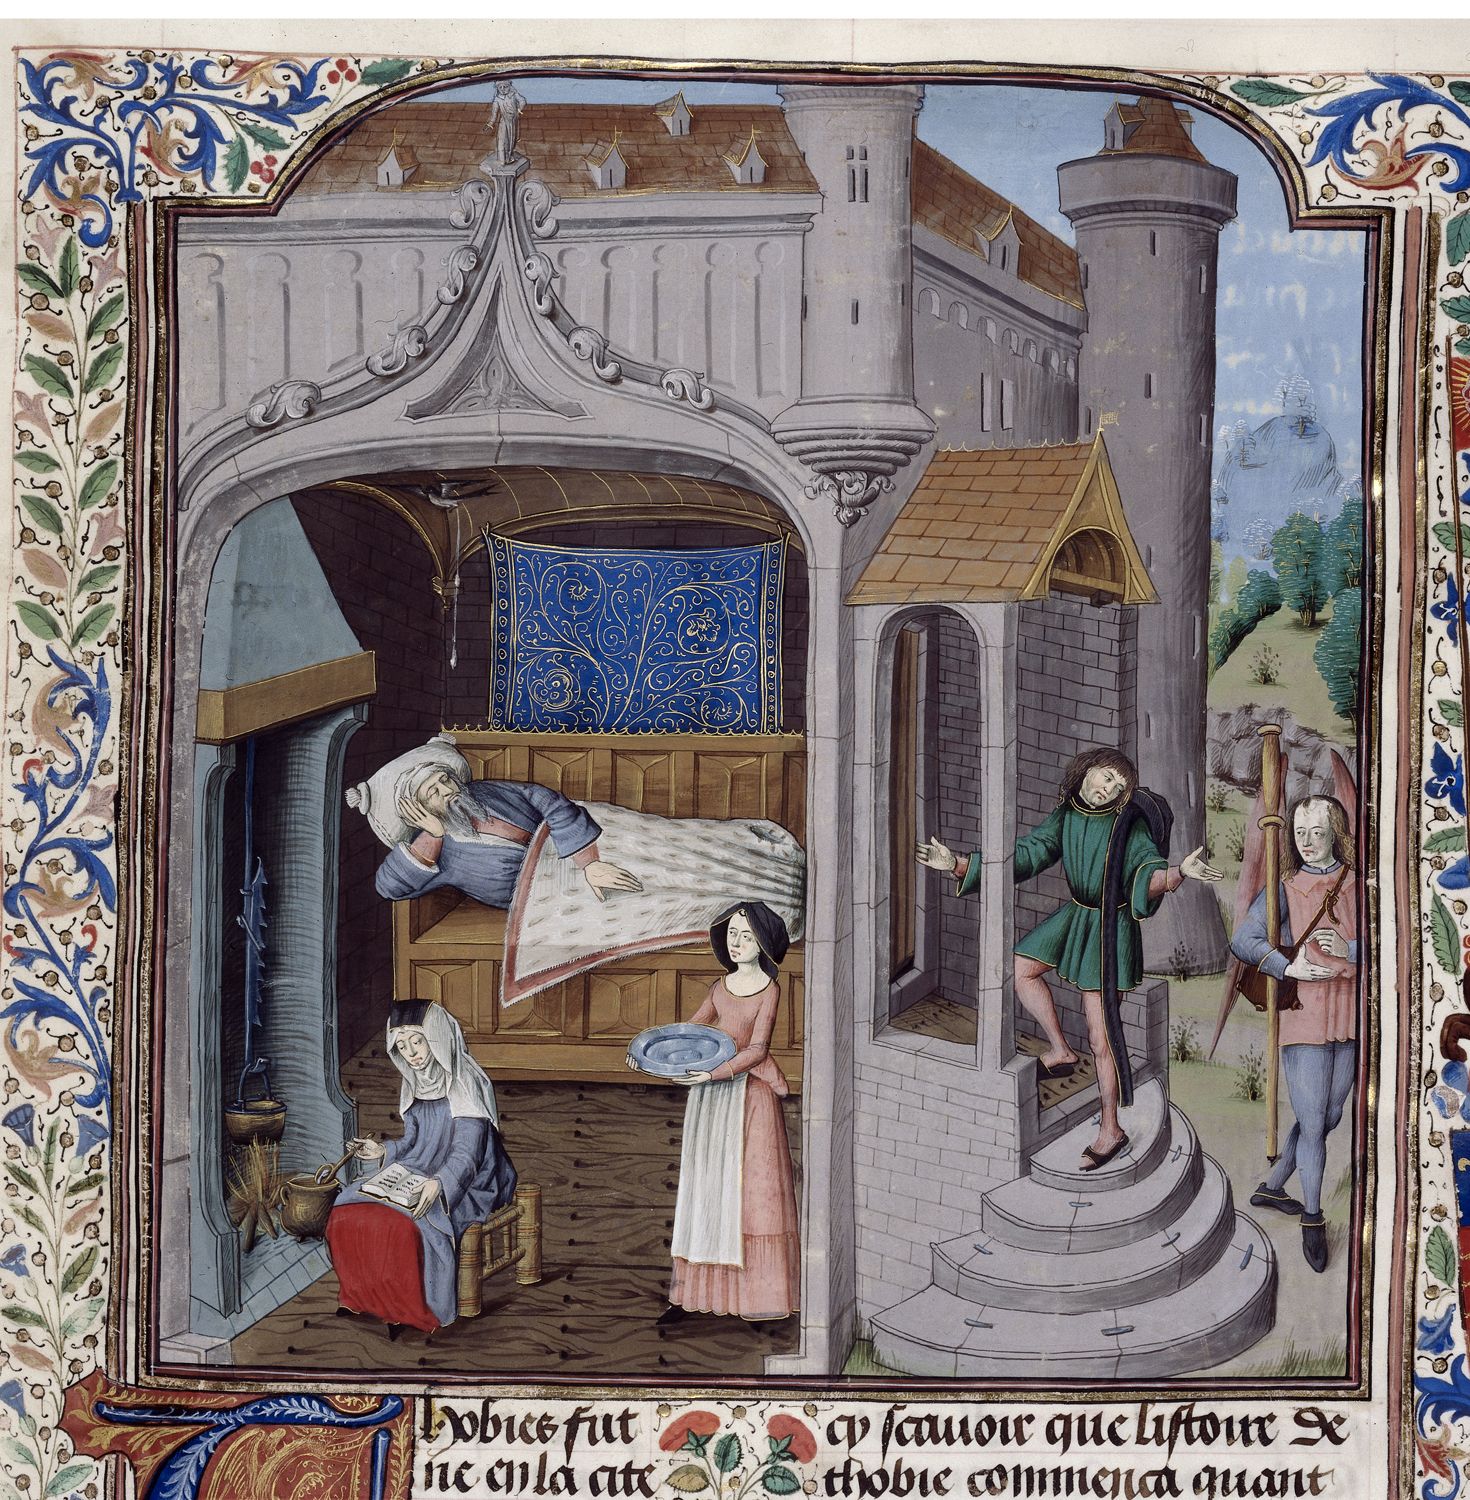 Thobies fut
ne en la cite
cy scauoir que listoire de
thobie commenca quant